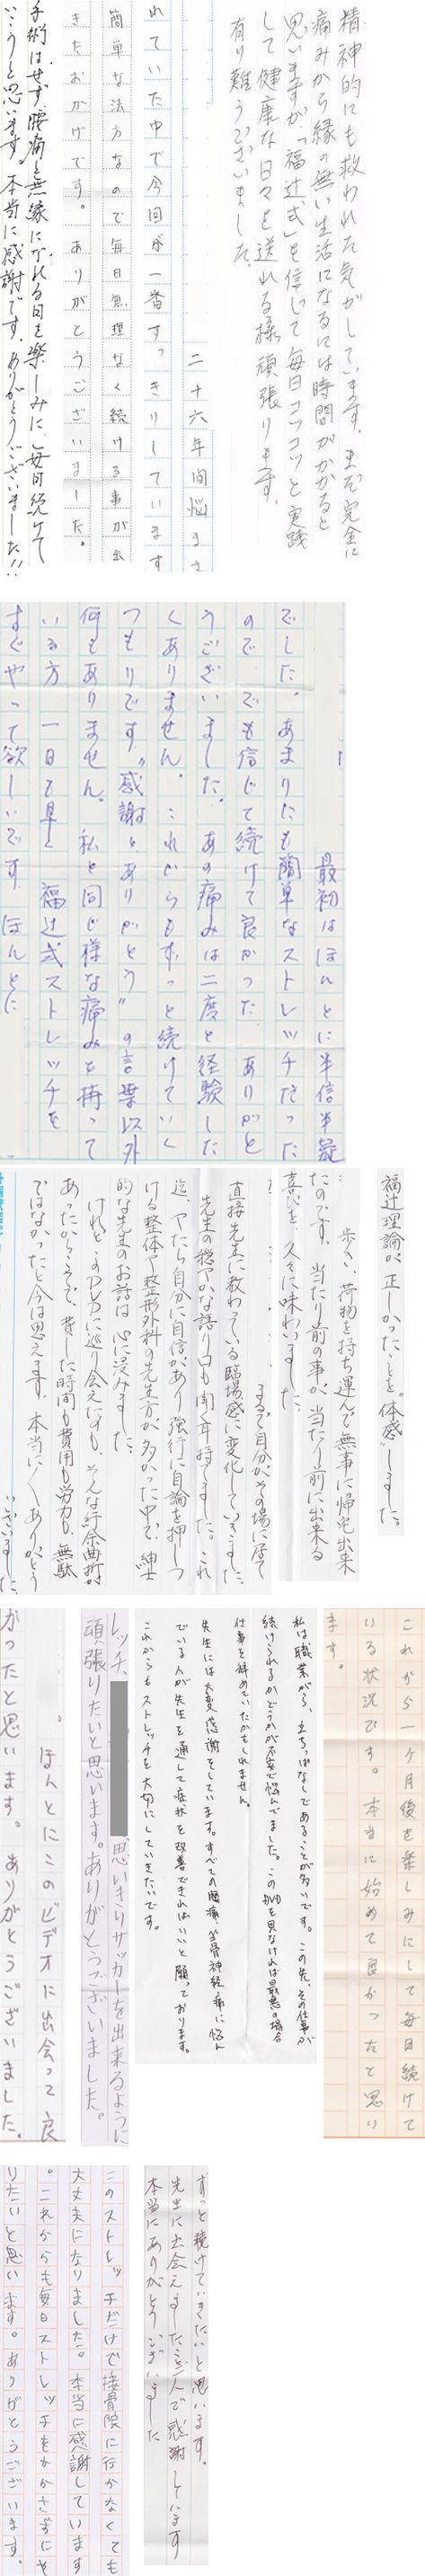 精神的にも救われた気がしています。まだ完全に
痛みから縁の無い生活になるには時間がかかると
思いますが、「福辻式」を信じて毎日コツコツと実践
して健康な日々を送れる様頑張ります。
有り難うございました。
二十六年間悩まさ
れていた中で今回が一番すっきりしています
簡単な法方なので毎日無理なく続ける事が出
きたおかげです。ありがとうございました。
手術はせず、腰痛と無縁になれる日を楽しみに、毎日続けて
いこうと思います。本当に感謝です。ありがとうございました!!
最初はほんとに半信半疑
でした。あまりにも簡単なストレッチだった
ので、でも信じて続けて良かった。ありがと
うございました。あの痛みは二度と経験した
くありません。これからもずっと続けていく
つもりです。"感謝とありがとう"の言葉以外
何もありません。私と同じ様な痛みを持って
いる方、一日も早く福辻式ストレッチを
すぐやって欲しいです。ほんとに
福辻理論が、正しかったことを"体感"しました。
歩き、荷物を持ち運んで無事に帰宅出来
たのです。当たり前の事が、当たり前に出来る
喜びを、久々に味わいました。
まるで自分がその場に居て
直接先生に教わっている臨場感に変化していきました。
先生の穏やかな語り口も聞く耳持てました。これ
迄、やたら自分に自信があり強行に自論を押しつ
ける整体や整形外科の先生方が多かった中で、紳士
的な先生のお話は心に浸みました。
けれどこのDVDに巡り会えたのも、そんな紆余曲折が
あったからこそで、費した時間も費用も労力も、無駄
ではなかったと今は思えます。本当に〱ありがとう
ございました
これから一ヶ月後を楽しみにして毎日続けて
いる状況です。本当に始めて良かったと思い
ます。
私は職業がら、立ちっぱなしであることが多いです。この先、その仕事が
続けられるかどうかが不安で悩んでました。このDVDを見なければ最悪の場合
仕事を辞めていたかもしれません。
先生には大変感謝をしています。すべての腰痛、坐骨神経痛に悩ん
でいる人が先生を通して症状を改善できればいいと願っております。
これからもストレッチを大切にしていきたいです。
レッチ、
思いきりサッカーを出来るように
頑張りたいと思います。ありがとうございました。
ほんとにこのビデオに出会って良
かったと思います。ありがとうございました。
ずっと続けていきたいと思います。
先生に出会えました事、心で感謝しています
本当にありがとうございました
このストレッチだけで接骨院に行かなくても
大丈夫になりました。本当に感謝しています
。これからも毎日ストレッチをかかさずにや
りたいと思います。ありがとうございます。